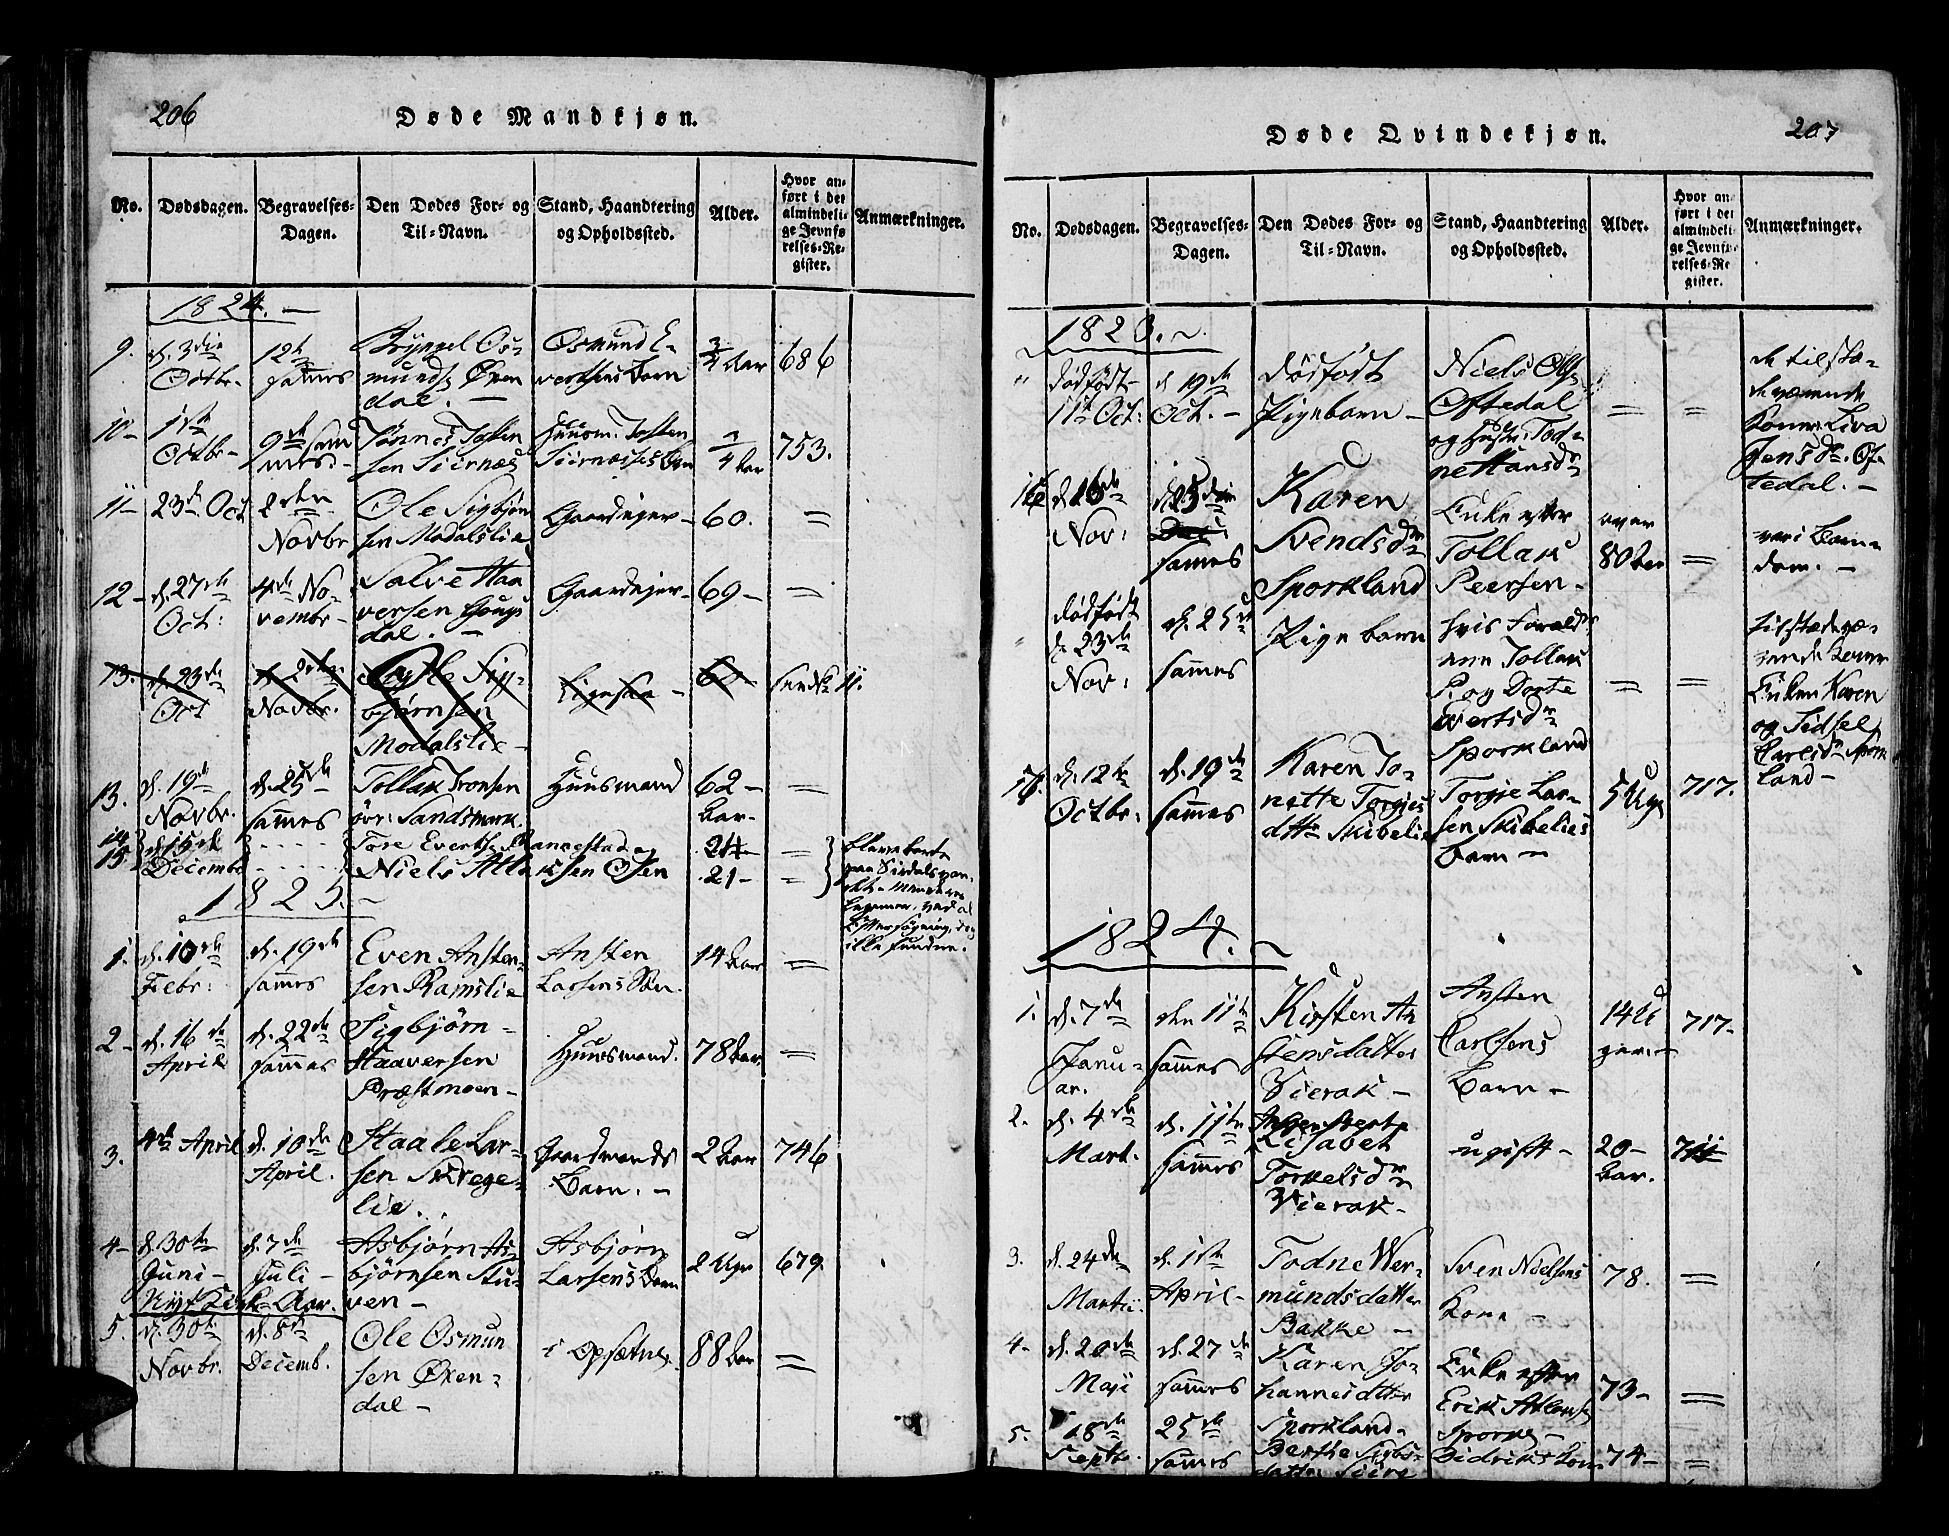 206
Døde Mandkjøn.
No.
Dødsdagen.
Begravelses-
Dagen.
Den Dødes For- og
Til-Navn.
Stand, Haandtering
og Opholdssted.
Alder.
Hvor an-
ført i det
almindeli-
ge Jevnfø
relses-Re-
gister.
Anmærkninger.
1824. —
9. d. 3die
Octbr.
12te
sammes
Os-
munds Øxen
dal. —
Osmund E-
vertsens Barn
3/4 Aar
686
10-
1ste
Octbr-
9de sam
mes-
Tønnes Tosten
sen Seirnæs
Huusm: Tosten
753.
11-
23de Oct
2den
Novbr
Ole Sigbjørn
sen Modalslie
Gaardejer-
60.
=
12-
d. 27de
Oct:
4de No-
vembr-
Salve Haa
versen
dal. —
Gaardejer-
69-
=
13.
d. 23de
Oct
Novbr.
Sig-
bjørnsen
Modalslie-
11.
13.
d. 19de
Novbr.
d. 25de
sammes
Tollak Tronsen
Sandsmark.
Huusmand
62-
Aar-
=
14
15
d. 15de
Decembr
Tore Evertsen
Niels Atlaksen Osen
24-
21-
=
=
ikke fundne.
1825. -
1.
d. 10de
Febr:
d. 19de
sammes
Even Ansten-
sen Ramslie
Ansten
Larsens Søn.
14 Aar
=
2-
d. 16de
April
d. 22de
sammes
Sigbjørn-
Haaversen
Præstmoen-
Huusmand.
78 Aar.
=
3.
4de April
d. 10de
April.
Staale Lar-
sen Skrege-
lie.
Gaardmands
Barn. -
2 Aar
746
4-
d. 30te
Juni-
d. 7de
Juli-
Asbjørn As-
bjørnsen Stu-
ven-
Asbjørn
Larsens Barn
2 Uger
679.
Nyt Kirke-Aar.
5.
d. 30te
Novbr.
d. 8de
Decemb.
Ole Osmun
sen Øxen-
dal-
i Opsætnes.
88 Aar
=
207
Døde Qvindekjøn.
No.
Dødsdagen.
Begravelses-
Dagen.
Den Dødes For- og
Til-Navn.
Stand, Haandtering
og Opholdssted.
Alder.
Hvor an
ført i det
almindeli-
ge Jevnfø-
relses-Re
gister.
Anmærkninger.
1823. ~
"
dødfødt
11te Oct:
d 19de
Oct. -
dødfødt
Pigebarn-
Niels Ols
Oftedal
og Hustr: Tod-
ne Hansdr
=
=
de tilstæ-
deværende
Koner Liva
Jensdr. Of-
tedal. -
16
d. 16de
Nov:
sammes
Karen
Svendsdr
Sporkland
Enke efter
Tollak
Peersen-
over
80 Aar
=
var i Barn-
dom. -
"
dødfødt
d. 23de
Nov:
d. 25de
sammes
Pigebarn
hvis Foreldr
ere Tollak
P. og Dorte
Evertsdr
Sporkland
=
=
tilstædevæ-
rende Koner
Enken Karen
og Sidsel
Carlsdr Spork
land-
17.
d. 12te
Octbr:
d. 19de
sammes
Karen To-
nette Torgies
dttr Skibelie
Torgie Lar-
sen Skibelies
Barn-
5 Uger
717.
1824. ~
1.
d. 7de
Janu-
ar.
den 11te
sammes
Kirsten An
stensdatter
Vierak-
Ansten
Carlsens
Barn-
14 U
ger.-
717-
2.
d. 4de
Mart.
d. 11te
sammes
Lisabet
Torkelsdr
Vierak-
ugift-
20-
Aar.
3.
d. 24de
Martii
d. 1ste
April-
Todne Wer-
mundsdatter
Bakke-
Sven Nielsens
Kone-
78.
=
4-
d. 20de
Maji
d. 27de
sammes
Karen Jo-
hannesdtter
Sporkland-
Enke efter
Erik Atlaks
73-
=
5.
18de
Septbr.
25de
sammes
Berthe Sigbs-
datter Seire
Didriks Kone
74-
=